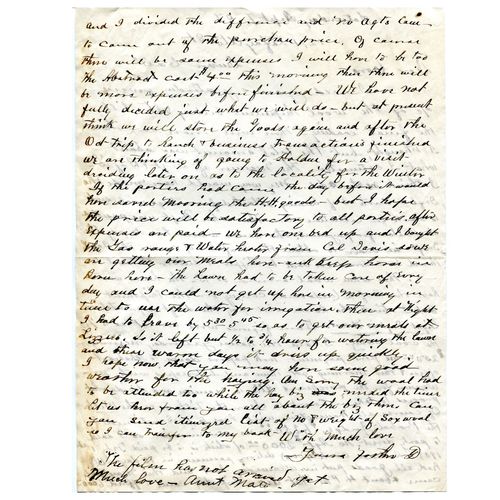 and I divided the difference and no Agts Com—
to come out of the purchase price. Of course
there will be some expenses I will have to be too
the Abstract cost $4.00 this morning then there will
be more expenses before finished — We have not
fully decided just what we will do — but at present
think we will store the Goods again and after the
Oct trip to Ranch & business transactions finished
we are thinking of going to Holdue for a visit
deciding later on as to the locality for the Winter
If the parties had came the day before it would
have saved mooving the H.H. goods — but I hope
the price will be satisfactory to all parties after
expenses are paid — we have our bed up and I bought
the Gas range & Water Heater from Cal Davis
are getting our meals here and keep house in
here — The Lawn had to be taken care of every
day and I could not get up here in morning in
time to use the water for irrigation, then at night
I had to leave by 5 30 5 45 so as to get our meals at
Lizzies. So it left but ½ to ¾ hour for watering the lawn
and these warm days it dries up quickly.
I hope now that you may have some good
weather for the haying. Am sorry the wool had
to be attended too while the hay big needed the time
Let us hear from you all about the big thing Can
you send itimized list of no & weight of Sax wool
so I can transfer to my book With much love
John D
The film has not arrived yet
Much love — Aunt Mate